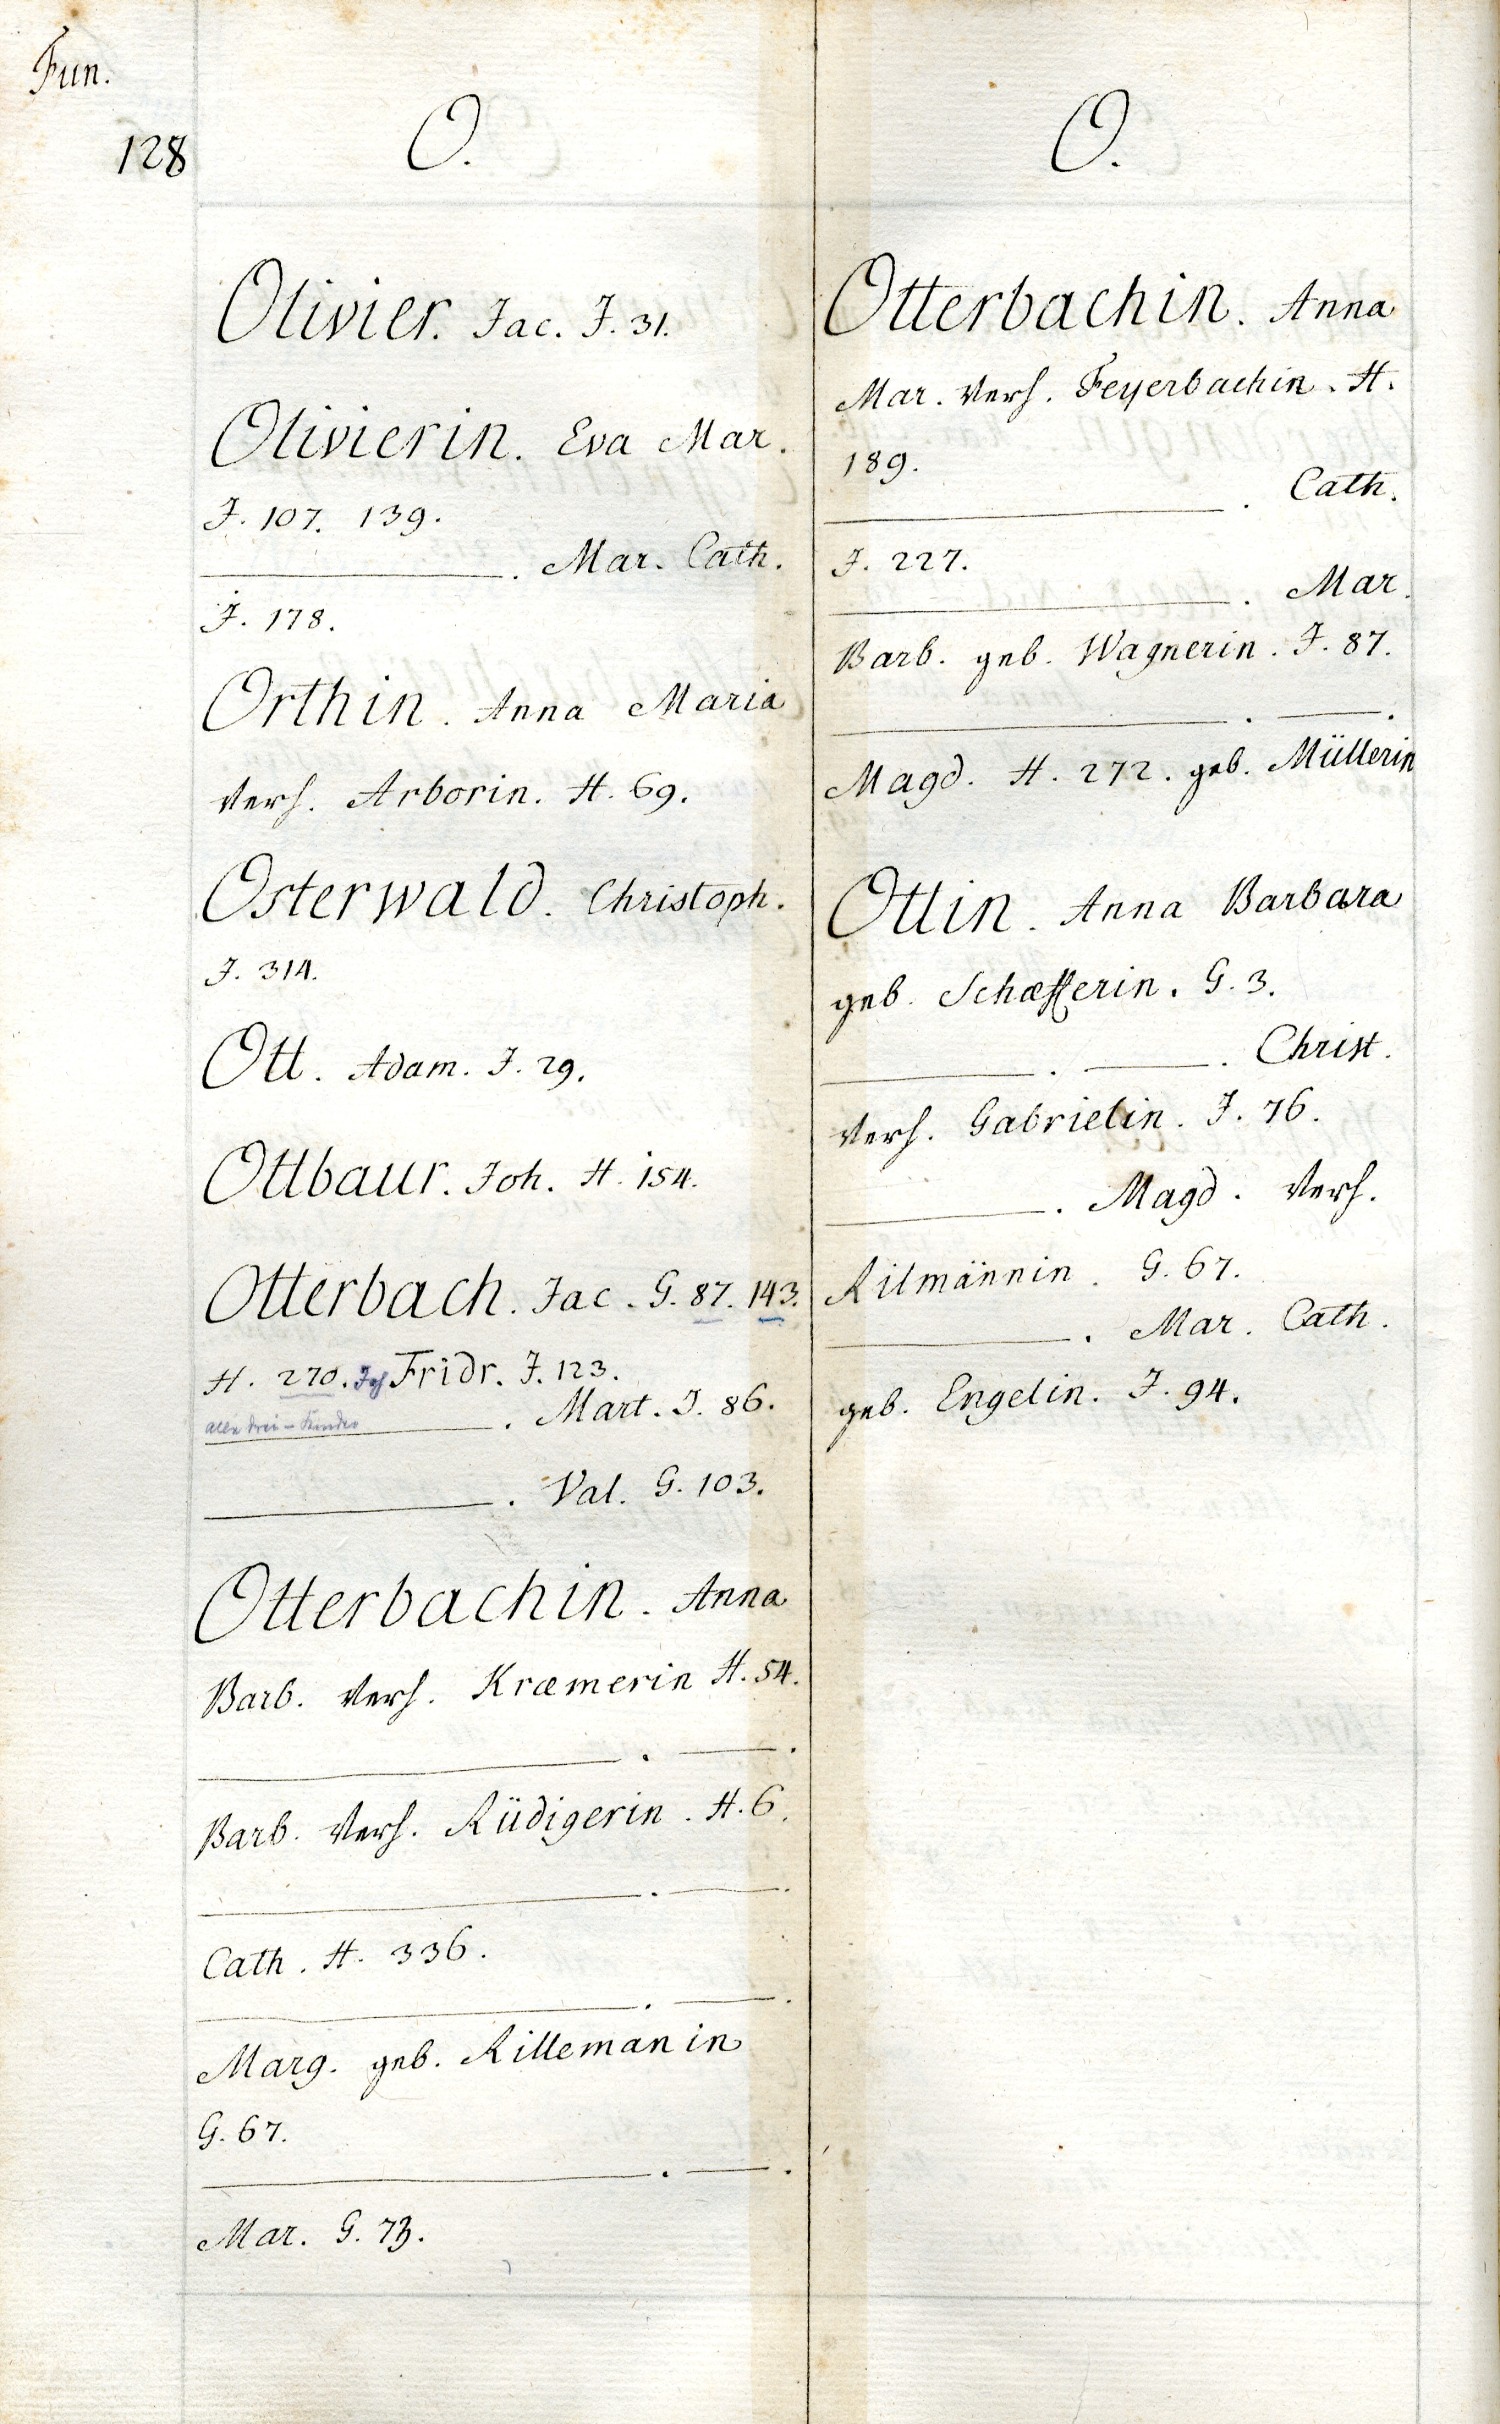 Fun.
128
O.
Olivier. Jac. J. 31.
Olivierin. Eva Mar.
J. 107. 139.
———. Mar. Cath.
J. 178.
Orthin. Anna Maria
verh. Arborin. H. 69.
Osterwald. Christoph.
J. 314.
Ott. Adam. J. 29.
Ottbaur. Joh. H. 154.
Otterbach. Jac. G. 87. 143.
H. 270. Joh Fridr. J. 123.
alle drei - Kinder
———. Mart. J. 86.
———. Val. G. 103.
Otterbachin. Anna
Barb. verh. Kræmerin H. 54.
———. ———.
Barb. verh. Rüdigerin. H. 6.
———. ———.
Cath. H. 336.
———. ———.
Marg. geb. Rillemanin
G. 67.
———. ———.
Mar. G. 73.
O.
Otterbachin. Anna
Mar. verh. Feyerbachin. H.
189.
———. Cath.
J. 227.
———. Mar.
Barb. geb. Wagnerin. J. 87.
———. ———.
Magd. H. 272. geb. Müllerin
Ottin. Anna Barbara
geb. Schæfferin. G. 3.
———. ———. Christ.
verh. Gabrielin. J. 76.
———. Magd. verh.
Rilmännin. G. 67.
———. Mar. Cath.
geb. Engelin. J. 94.